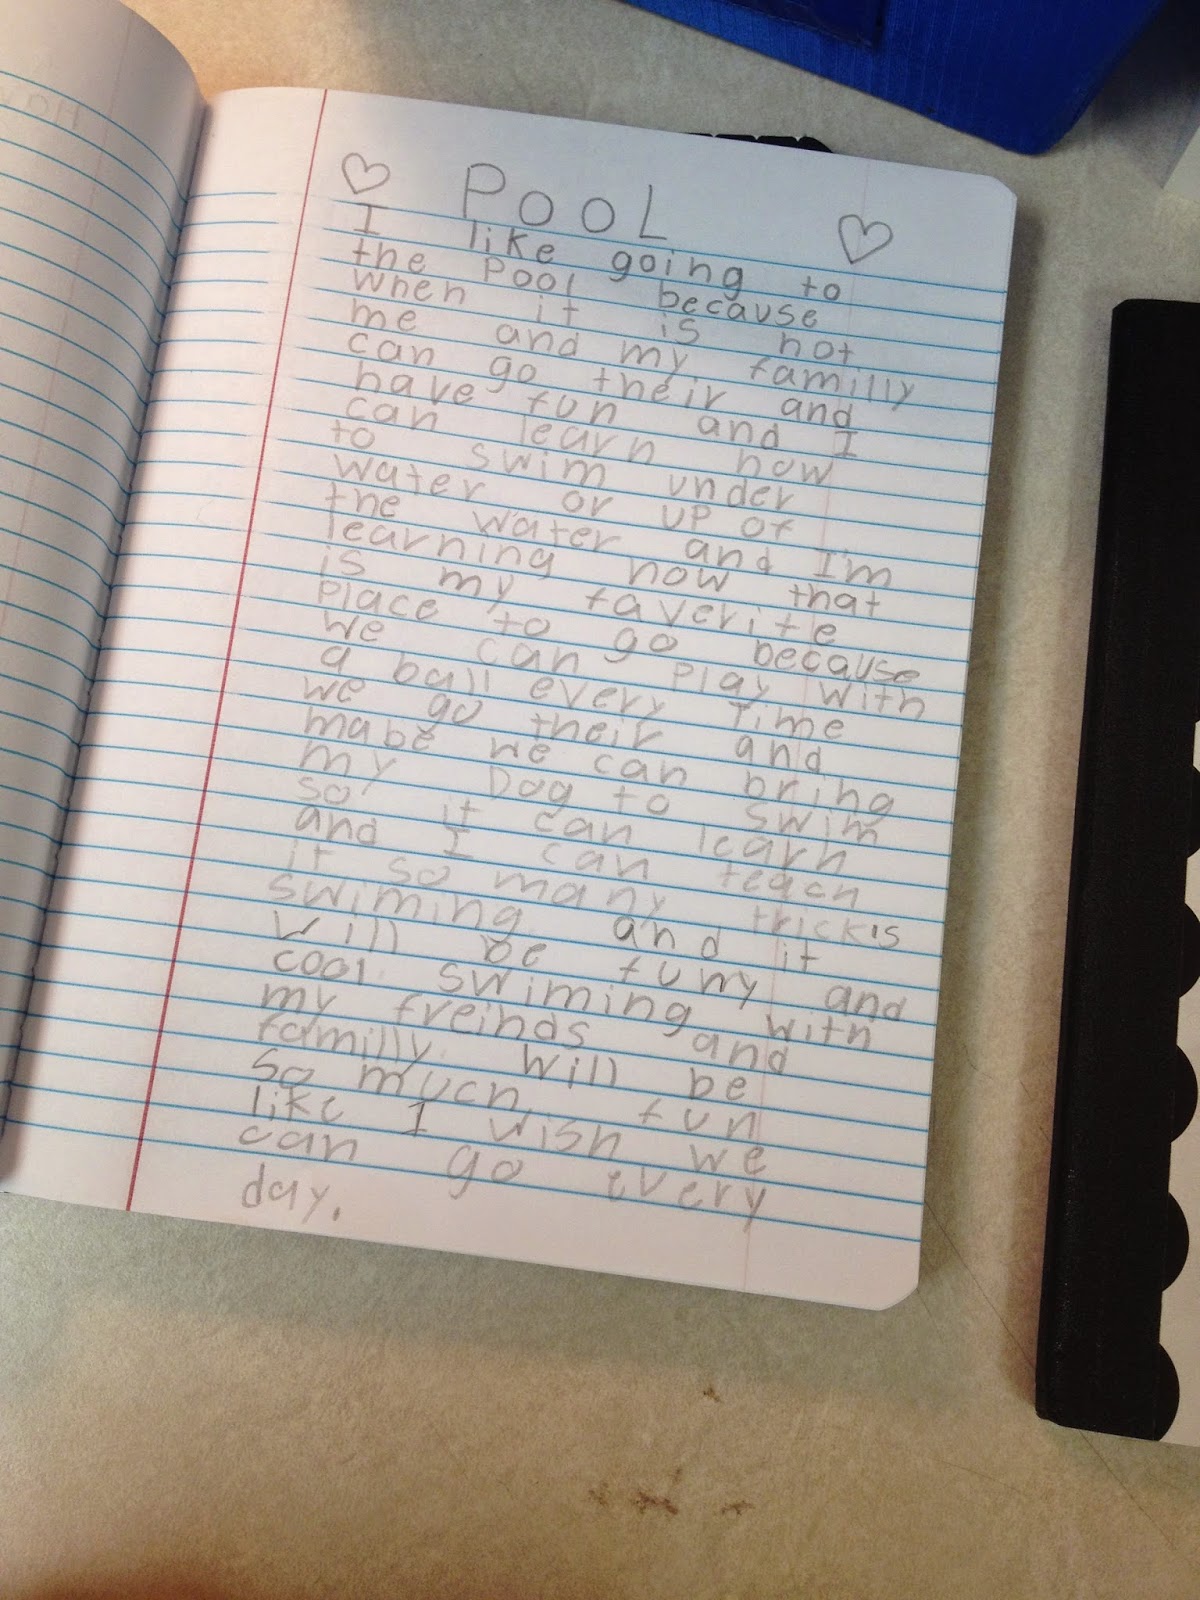 POOL
I like going to
the Pool because
when it is hot
me and my familly
can go their and
have fun and I
can learn how
to swim under
water or up of
the water and I'm
learning how that
is my faverite
place to go because
we can play with
a ball every time
we go their and
mabe we can bring
my Dog to swim
so it can learn
and I can teach
it so many trickis
swiming and it
will be funy and
cool swiming with
my freinds and
familly will be
so much fun
like I wish we
can go every
day.